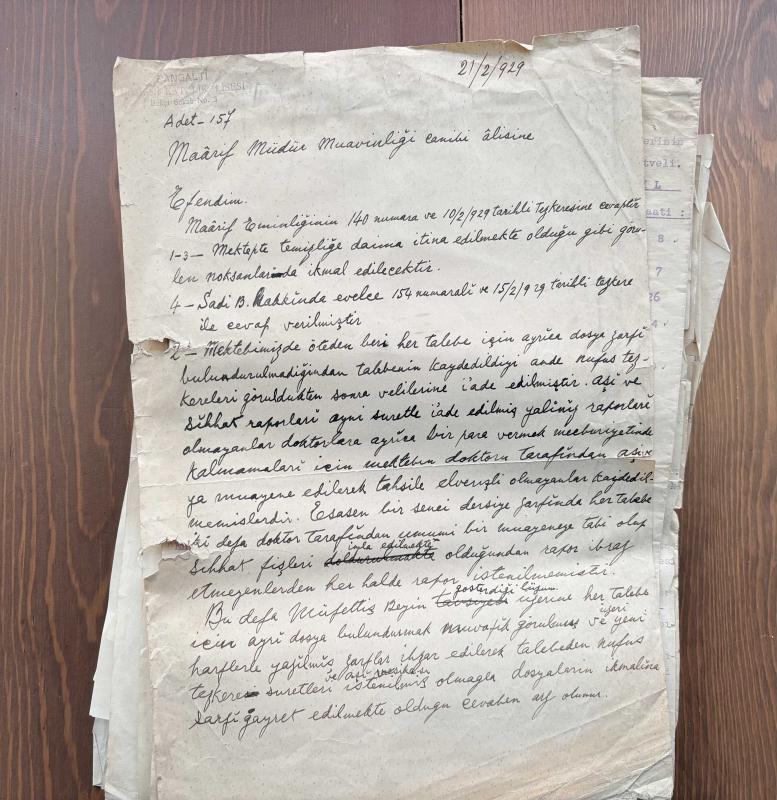 PANGALTI
LİSESİ
No. 3
21/2/929
Adet - 157
Maârif Müdür Muavinliği canibi âlisine
Efendim.
Maârif Eminliğinin 140 numara ve 10/2/929 tarihli tezkeresine cevaptır
1-3 - Mektepte temizliğe daima itina edilmekte olduğu gibi görü-
len noksanlarında ikmal edilecektir.
4 - Sadi B. Hakkinda evelce 154 numaralı ve 15/2/929 tarihli tezkere
ile cevap verilmiştir
2 - Mektebimizde öteden beri her talebe için ayrıca dosya zarfi
bulundurulmadığından talebenin kaydedildiği ande nufus tez-
kereleri görüldükten sonra velilerine i'ade edilmiştir. Aşi ve
sihhat raporlari ayni suretle i'ade edilmiş yaliniz raporlari
olmayanlar doktorlara ayrica bir para vermek mecburiyetinde
kalmamalari için mektebin doktoru tarafindan aşi ve
ya muayene edilerek tahsile elverişli olmayanlar kaydedil-
memislerdir. Esasen bir senei dersiye zarfinda her talebe
iki defa doktor tarafindan umumi bir muayeneye tabi olup
imla edilmekte
sihhat fişleri doldurulmakta olduğundan rapor ibraz
etmeyenlerden her halde rapor istenilmemistir.
gösterdiği lüzum
Bu defa Müfettiş Beyin tavsiyesi üzerine her talebe
için ayri dosya bulundurmak muvafik görülmüş ve üzeri yeni
harflerle yazilmiş zarflar ihzar edilerek talebeden nufus
ve aşi vesikasi
tezkere suretleri istenilmiş olmagla dosyalarin ikmaline
sarfi gayret edilmekte oldugu cevaben arz olunur.
erinin
tveli.
L
aati :
8 .
7
26
4 .